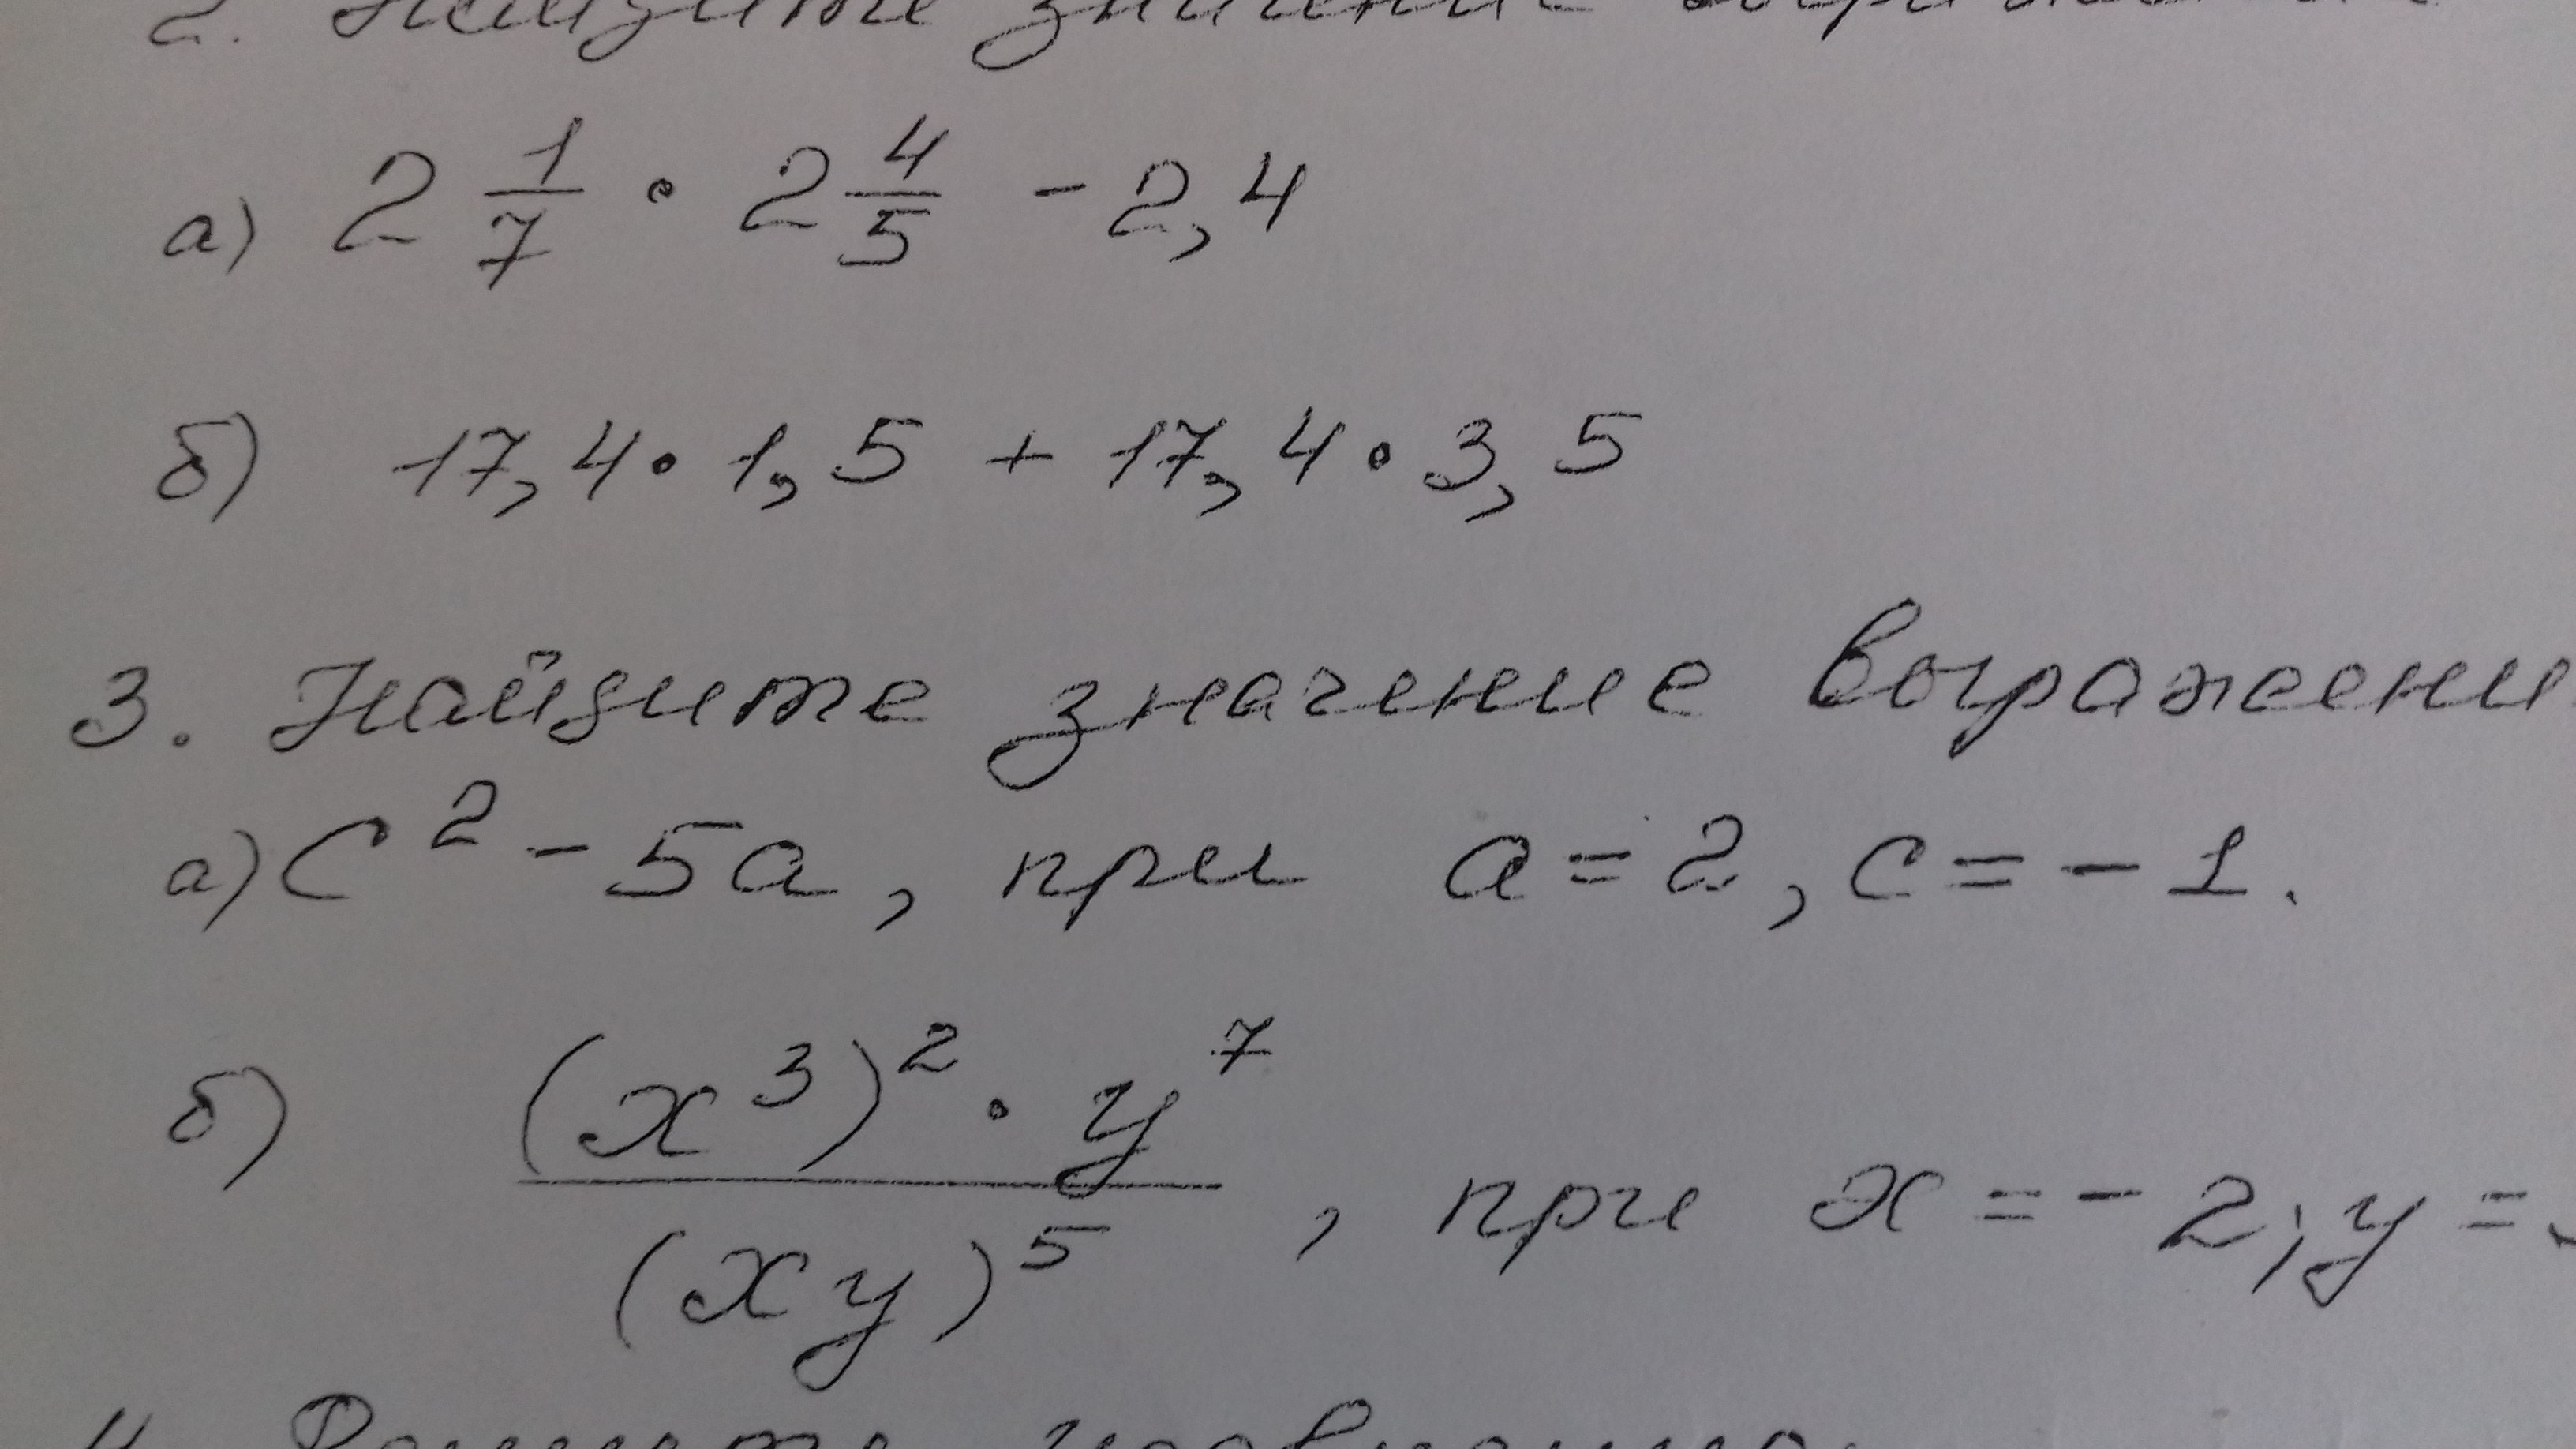 2. Найдите значение
а) 2 1/7 • 2 4/5 - 2,4
б) 17,4 • 1,5 + 17,4 • 3,5
3. Найдите значение выражени
а) c² - 5a, при a = 2, c = - 1.
б) (x³)² • y⁷ / (xy)⁵, при x = - 2; y =
4. Решите